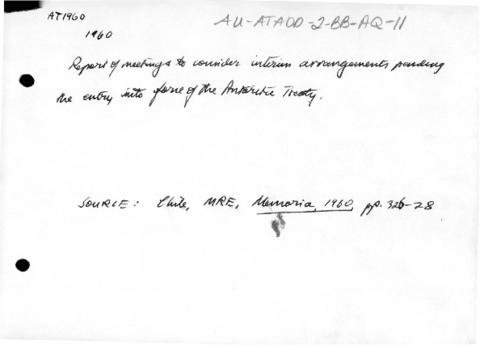 AT1960
AU-ATADD-2-BB-AQ-11
1960
Report of meetings to consider interim arrangements pending
the entry into force of the Antarctic Treaty.
SOURCE: Chile, MRE, Memoria, 1960, pp. 326-28